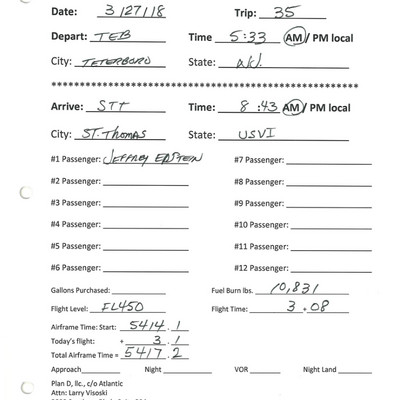 Date: 3/27/18 Trip: 35
Depart: TEB Time 5:33 AM / PM local
City: TETERBORO State: N.J.
************************************************************
Arrive: STT Time: 8:43 AM / PM local
City: ST. THOMAS State: USVI
#1 Passenger: JEFFREY EPSTEIN #7 Passenger:
#2 Passenger: #8 Passenger:
#3 Passenger: #9 Passenger:
#4 Passenger: #10 Passenger:
#5 Passenger: #11 Passenger:
#6 Passenger: #12 Passenger:
Gallons Purchased: Fuel Burn lbs. 10,831
Flight Level: FL450 Flight Time: 3.08
Airframe Time: Start: 5414.1
Today's flight: + 3.1
Total Airframe Time = 5417.2
Approach Night VOR Night Land
Plan D, llc., c/o Atlantic
Attn: Larry Visoski